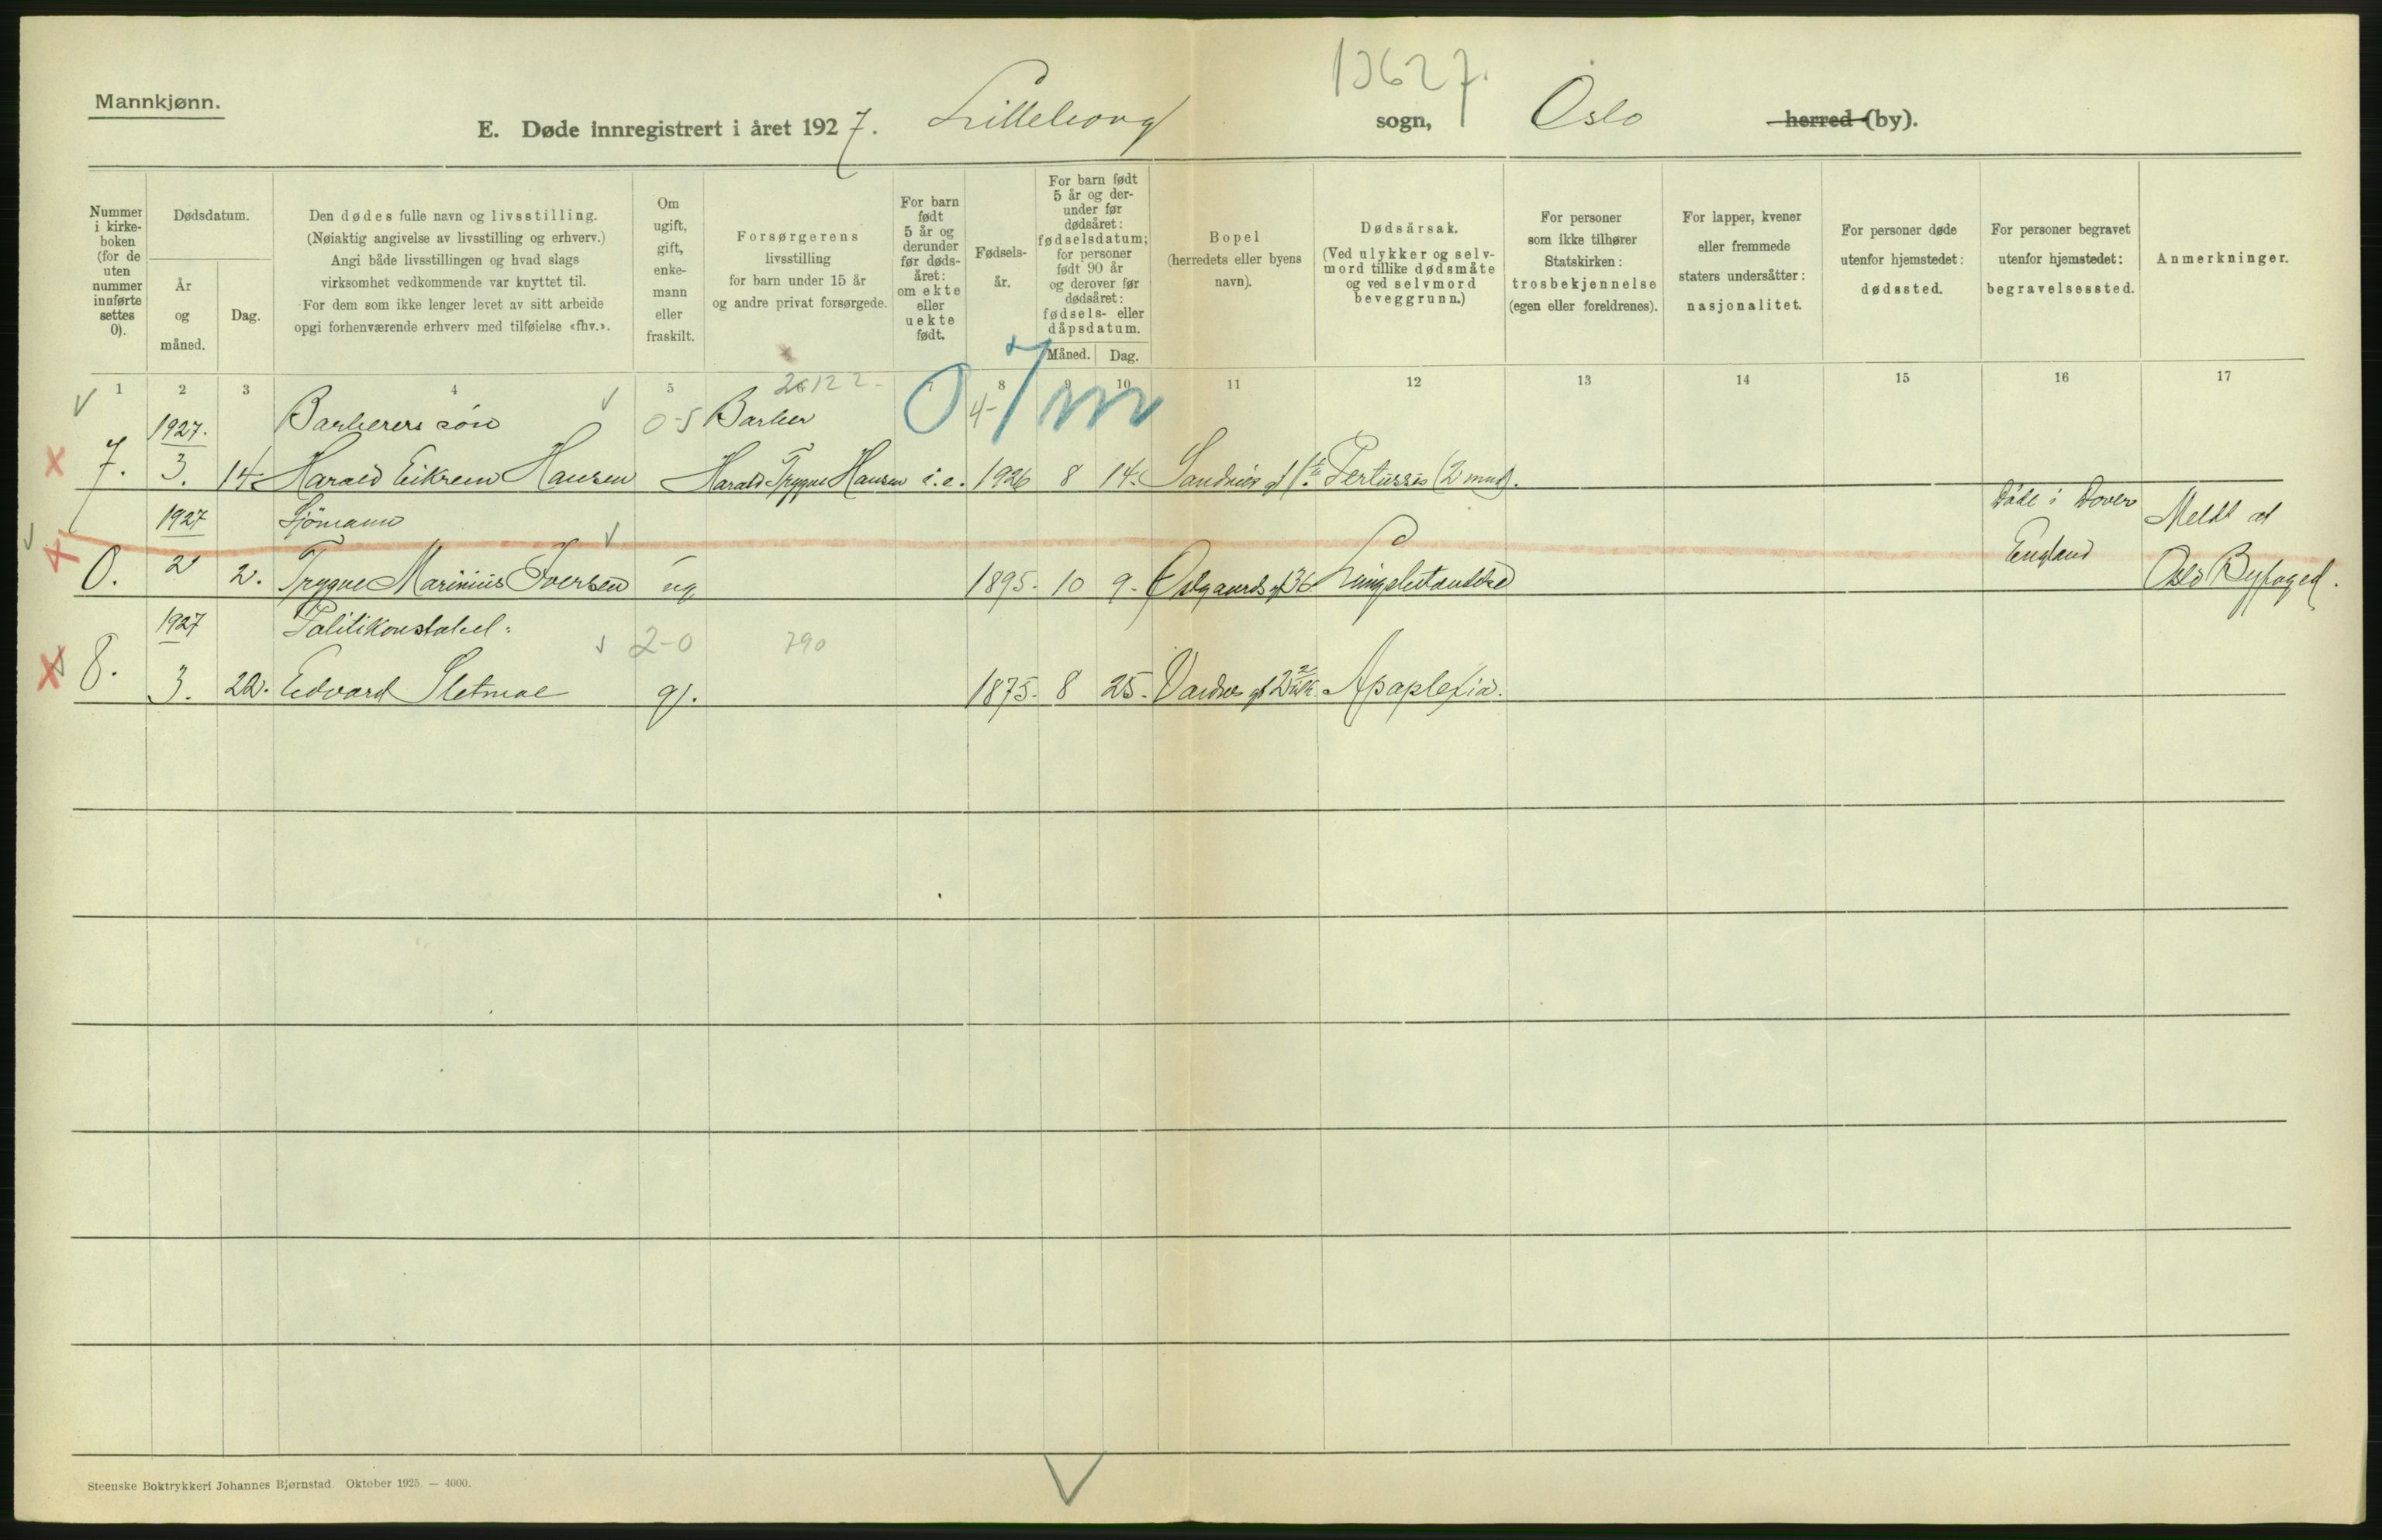 13627.
Mannkjønn.
E. Døde innregistrert i året 1927. Lilleborg sogn, Oslo herred (by).
Nummer i kirke-boken (for de uten nummer innførte settes 0).
Dødsdatum.
År og måned.
Dag.
Den dødes fulle navn og livsstilling.
(Nøiaktig angivelse av livsstilling og erhverv.)
Angi både livsstillingen og hvad slags
virksomhet vedkommende var knyttet til.
For dem som ikke lenger levet av sitt arbeide
opgi forhenværende erhverv med tilføielse «fhv.».
Om ugift, gift, enke-mann eller fraskilt.
Forsørgerens
livsstilling
for barn under 15 år
og andre privat forsørgede.
For barn født 5 år og derunder før døds-året: om ekte eller uekte født.
Fødsels-år.
For barn født 5 år og der-under før dødsåret: fødselsdatum; for personer født 90 år og derover før dødsåret: fødsels- eller dåpsdatum.
Måned.
Dag.
Bopel
(herredets eller byens
navn).
Dødsårsak.
(Ved ulykker og selv-
mord tillike dødsmåte
og ved selvmord
beveggrunn.)
For personer
som ikke tilhører
Statskirken:
trosbekjennelse
(egen eller foreldrenes).
For lapper, kvener
eller fremmede
staters undersåtter:
nasjonalitet.
For personer døde
utenfor hjemstedet:
dødssted.
For personer begravet
utenfor hjemstedet:
begravelsessted.
Anmerkninger.
1 2 3 4 5 7 8 9 10 11 12 13 14 15 16 17
1927. Barberers søn 0-5 Barber 4-
7. 3. 14. Harald Eikrem Hansen Harald Trygve Hansen i.e. 1926 8 14. Pertussis (2 mnd).
1927 Sjømann Døde i Dover Meldt af
0. 2 2. Trygve Marinius Iversen ug 1895. 10 9. England Oslo Byfoged.
1927 Politikonstabel. 2-0 790
8. 3. 22. Edvard Sletmoe g. 1875. 8 25. Apoplexia.
Steenske Boktrykkeri Johannes Bjørnstad. Oktober 1925. — 4000.